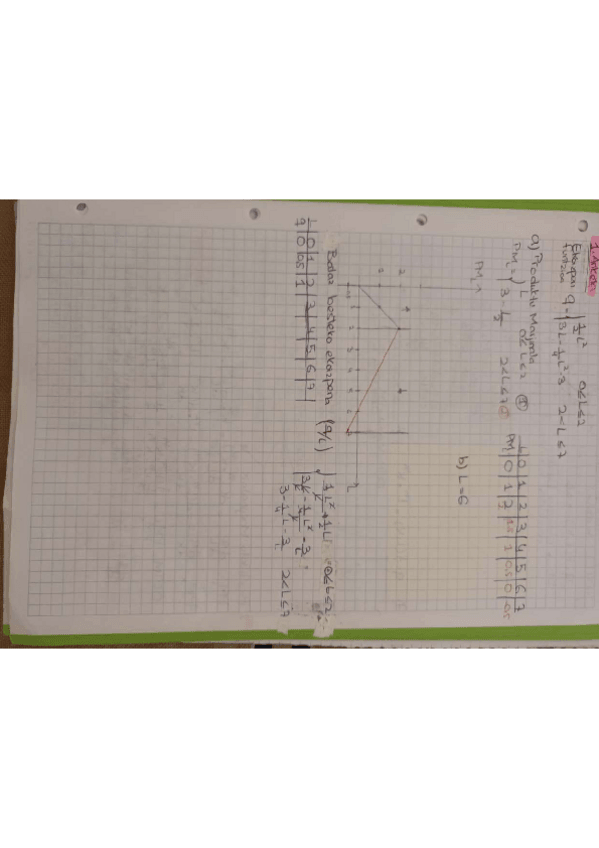 1. Ariketa
Ekoizpen funtzioa q = { 1/2 L² 0≤L≤2
3L - 1/4 L² - 3 2<L≤7
a) Produktu Marjinala
PM_L = { L 0≤L≤2 ①
3 - L/2 2<L≤7 ②
L | 0 | 1 | 2 | 3 | 4 | 5 | 6 | 7
PM | 0 | 1 | 2 | 1,5 | 1 | 0,5 | 0 | -0,5
b) L=6
PM
L
Batez besteko ekoizpena (q/L) { 1/2 L 0≤L≤2
3 - 1/4 L - 3/L 2<L≤7
L | 0 | 1 | 2 | 3 | 4 | 5 | 6 | 7
0 | 0,5 | 1